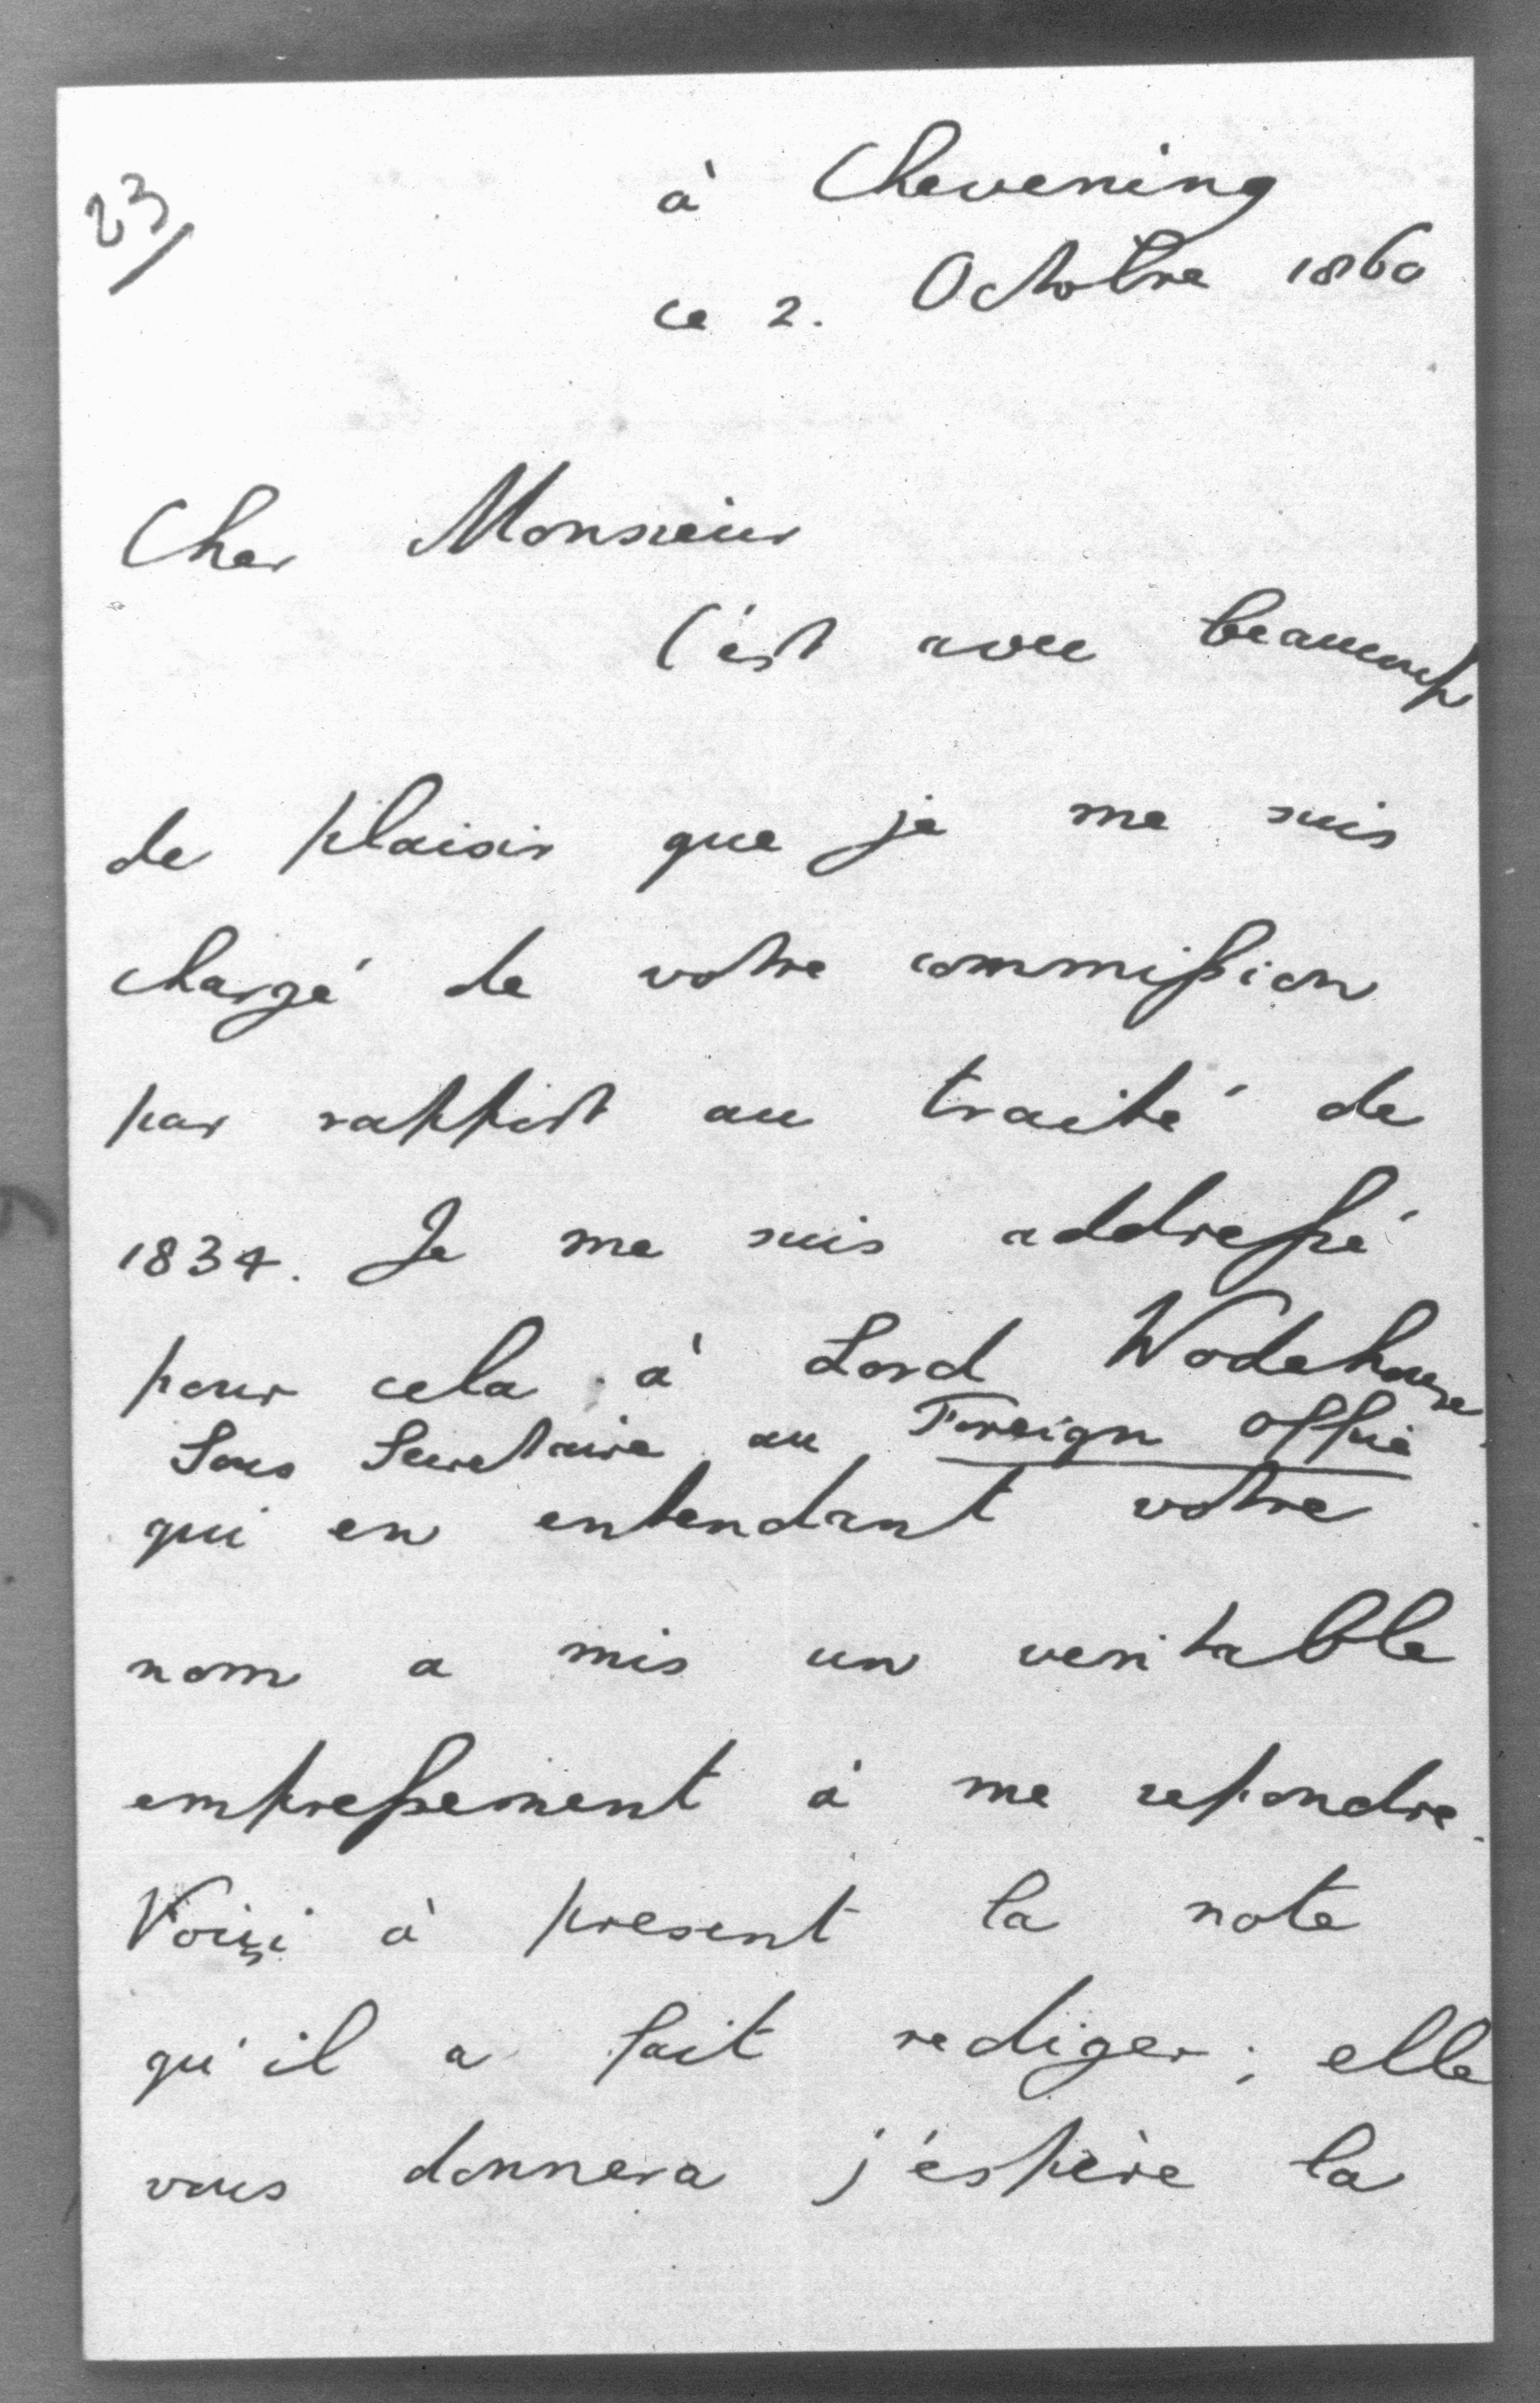 23/
à Chevening
ce 2. Octobre 1860
Cher Monsieur
C'est avec beaucoup
de plaisir que je me suis
chargé de votre commission
par rapport au traité de
1834. Je me suis addressé
pour cela à Lord Wodehouse
Sous Secretaire au Foreign Office
qui en entendant votre
nom a mis un veritable
empressement à me repondre.
Voiçi à present la note
qu'il a fait rediger; elle
vous donnera j'éspère la